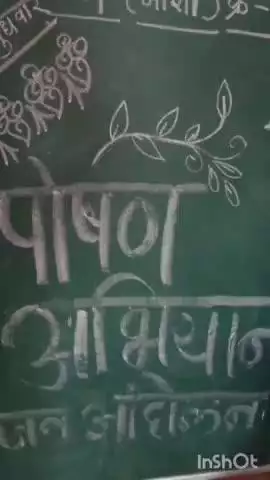 बुधवार
(जाशी) क्र -
पोषण
अभियान
जन आंदोलन
InShOt